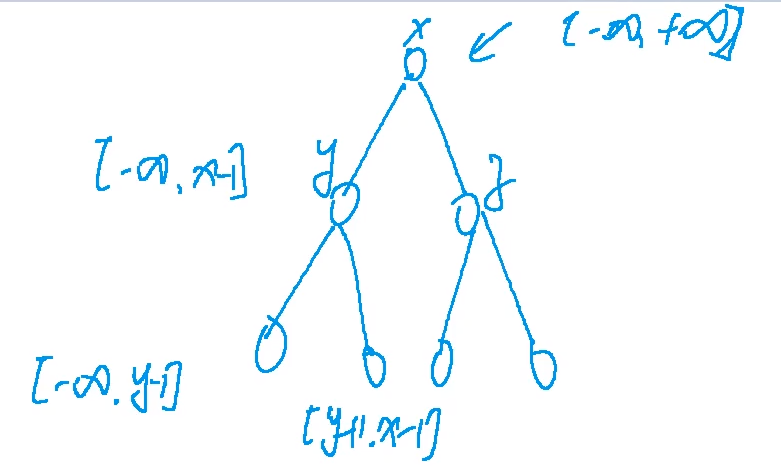 x
[-∞, +∞]
[-∞, x-1]
y
z
[-∞, y-1]
[y+1, x-1]